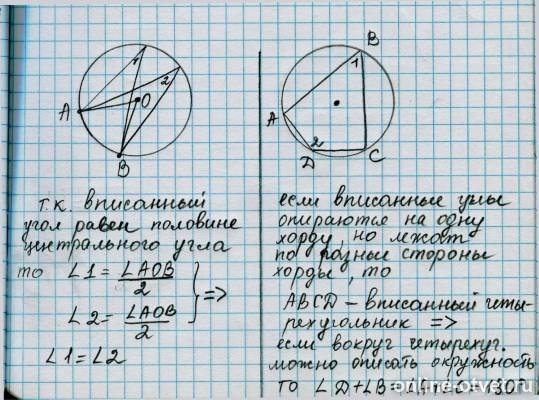 1
2
O
A
B
т.к. вписанный
угол равен половине
центрального угла
то ∠1 = ∠AOB
2
∠2 = ∠AOB
2
=>
∠1 = ∠2
B
1
A
2
D
C
если вписанные углы
опираются на одну
хорду, но лежат
по разные стороны
хорды, то
ABCD – вписанный четы-
рехугольник =>
если вокруг четырехуг.
можно описать окружность
то ∠D + ∠B =
online-otvet.ru